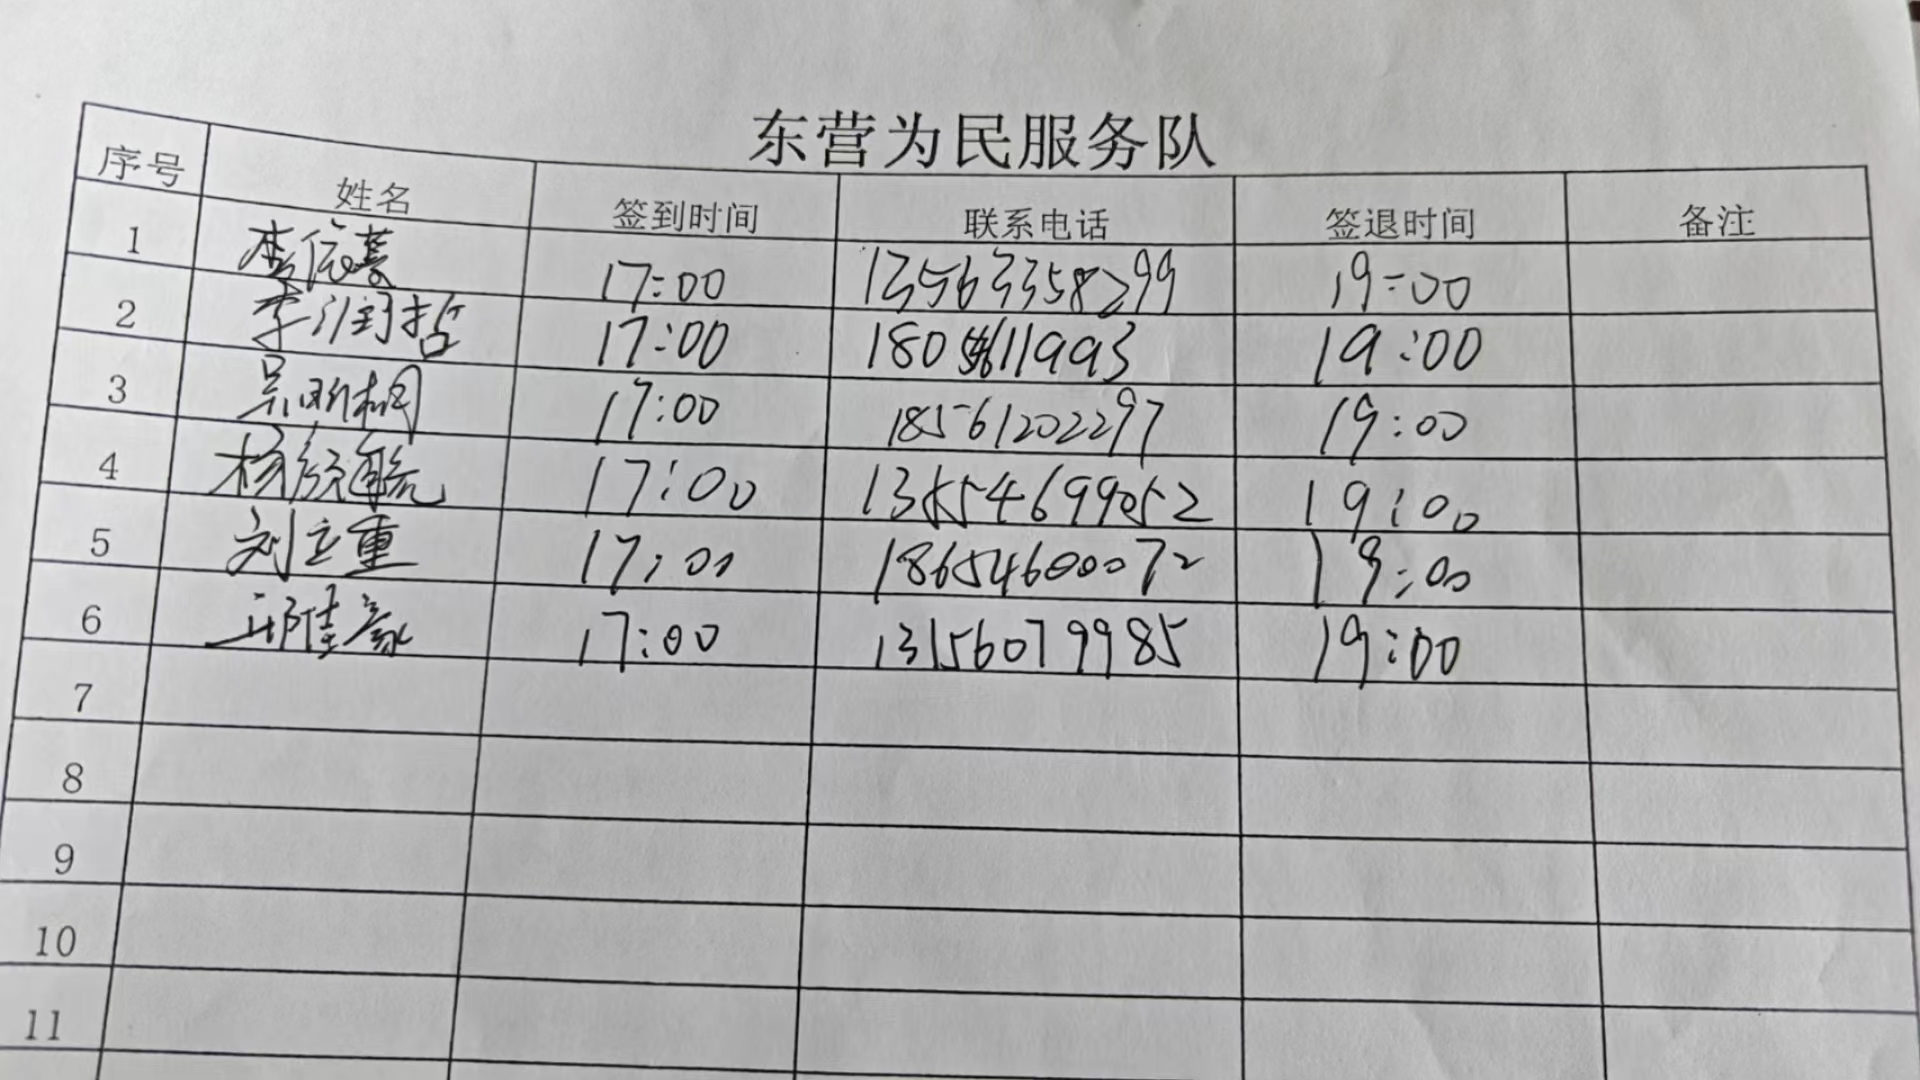 东营为民服务队
序号 姓名 签到时间 联系电话 签退时间 备注
1 李依蔓 17:00 13563358299 19:00
2 李润哲 17:00 180 11993 19:00
3 吴 桐 17:00 18561202297 19:00
4 杨 17:00 19:00
5 刘立重 17:00 18654600072 19:00
6 邢佳豪 17:00 13156079985 19:00
7
8
9
10
11